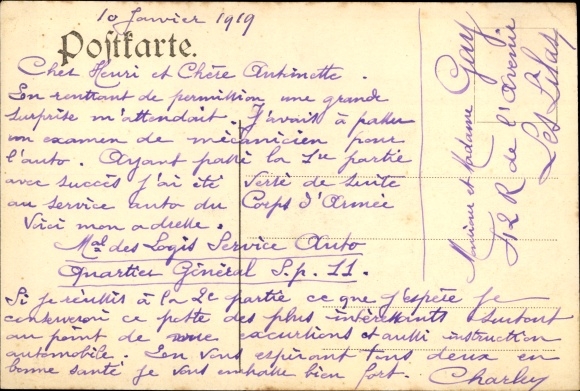 10 Janvier 1919
Postkarte.
Cher Henri et Chère Antinette.
En rentrant de permission une grande
surprise m'attendait. J'avais à passer
un examen de mécanicien pour
l'auto. Ayant passé la 1re partie
avec succès j'ai été versé de suite
au service auto du Corps d'Armée
Voici mon adresse.
Mal des Logis Service Auto
Quartier Général S.p. 11.
Si je réussis à la 2e partie ce que j'espère je
conserverai ce poste des plus intéressants surtout
au point de vue excurtions et aussi instruction
automobile. En vous espérant tous deux en
bonne santé je vous embrasse bien fort. Charley
Monsieur et Madame Gay
12 R de l'Avenir
Les Lilas